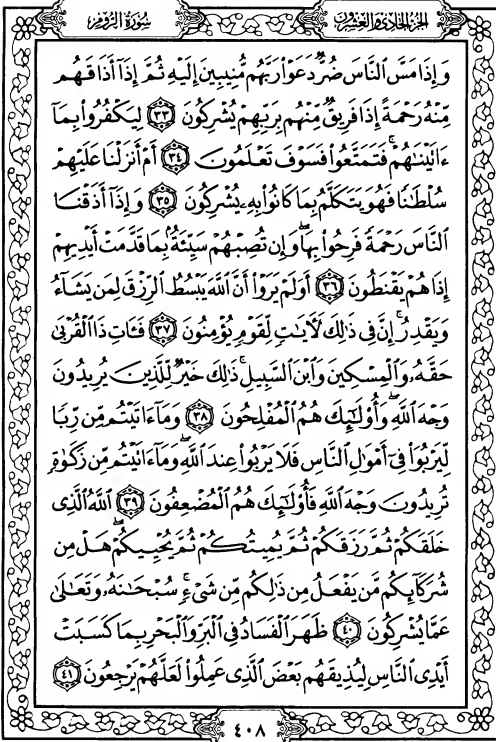 سُورَةُ الرُّومِ
الجُزءُ الحَادِي وَالعِشرُونَ
وَإِذَا مَسَّ ٱلنَّاسَ ضُرٌّ دَعَوْا۟ رَبَّهُم مُّنِيبِينَ إِلَيْهِ ثُمَّ إِذَآ أَذَاقَهُم
مِّنْهُ رَحْمَةً إِذَا فَرِيقٌ مِّنْهُم بِرَبِّهِمْ يُشْرِكُونَ ٣٣ لِيَكْفُرُوا۟ بِمَآ
ءَاتَيْنَٰهُمْ ۚ فَتَمَتَّعُوا۟ فَسَوْفَ تَعْلَمُونَ ٣٤ أَمْ أَنزَلْنَا عَلَيْهِمْ
سُلْطَٰنًا فَهُوَ يَتَكَلَّمُ بِمَا كَانُوا۟ بِهِۦ يُشْرِكُونَ ٣٥ وَإِذَآ أَذَقْنَا
ٱلنَّاسَ رَحْمَةً فَرِحُوا۟ بِهَا ۖ وَإِن تُصِبْهُمْ سَيِّئَةٌۢ بِمَا قَدَّمَتْ أَيْدِيهِمْ
إِذَا هُمْ يَقْنَطُونَ ٣٦ أَوَلَمْ يَرَوْا۟ أَنَّ ٱللَّهَ يَبْسُطُ ٱلرِّزْقَ لِمَن يَشَآءُ
وَيَقْدِرُ ۚ إِنَّ فِى ذَٰلِكَ لَءَايَٰتٍ لِّقَوْمٍ يُؤْمِنُونَ ٣٧ فَـَٔاتِ ذَا ٱلْقُرْبَىٰ
حَقَّهُۥ وَٱلْمِسْكِينَ وَٱبْنَ ٱلسَّبِيلِ ۚ ذَٰلِكَ خَيْرٌ لِّلَّذِينَ يُرِيدُونَ
وَجْهَ ٱللَّهِ ۖ وَأُو۟لَٰٓئِكَ هُمُ ٱلْمُفْلِحُونَ ٣٨ وَمَآ ءَاتَيْتُم مِّن رِّبًا
لِّيَرْبُوَا۟ فِىٓ أَمْوَٰلِ ٱلنَّاسِ فَلَا يَرْبُوا۟ عِندَ ٱللَّهِ ۖ وَمَآ ءَاتَيْتُم مِّن زَكَوٰةٍ
تُرِيدُونَ وَجْهَ ٱللَّهِ فَأُو۟لَٰٓئِكَ هُمُ ٱلْمُضْعِفُونَ ٣٩ ٱللَّهُ ٱلَّذِى
خَلَقَكُمْ ثُمَّ رَزَقَكُمْ ثُمَّ يُمِيتُكُمْ ثُمَّ يُحْيِيكُمْ ۖ هَلْ مِن
شُرَكَآئِكُم مَّن يَفْعَلُ مِن ذَٰلِكُم مِّن شَىْءٍ ۚ سُبْحَٰنَهُۥ وَتَعَٰلَىٰ
عَمَّا يُشْرِكُونَ ٤٠ ظَهَرَ ٱلْفَسَادُ فِى ٱلْبَرِّ وَٱلْبَحْرِ بِمَا كَسَبَتْ
أَيْدِى ٱلنَّاسِ لِيُذِيقَهُم بَعْضَ ٱلَّذِى عَمِلُوا۟ لَعَلَّهُمْ يَرْجِعُونَ ٤١
٤٠٨